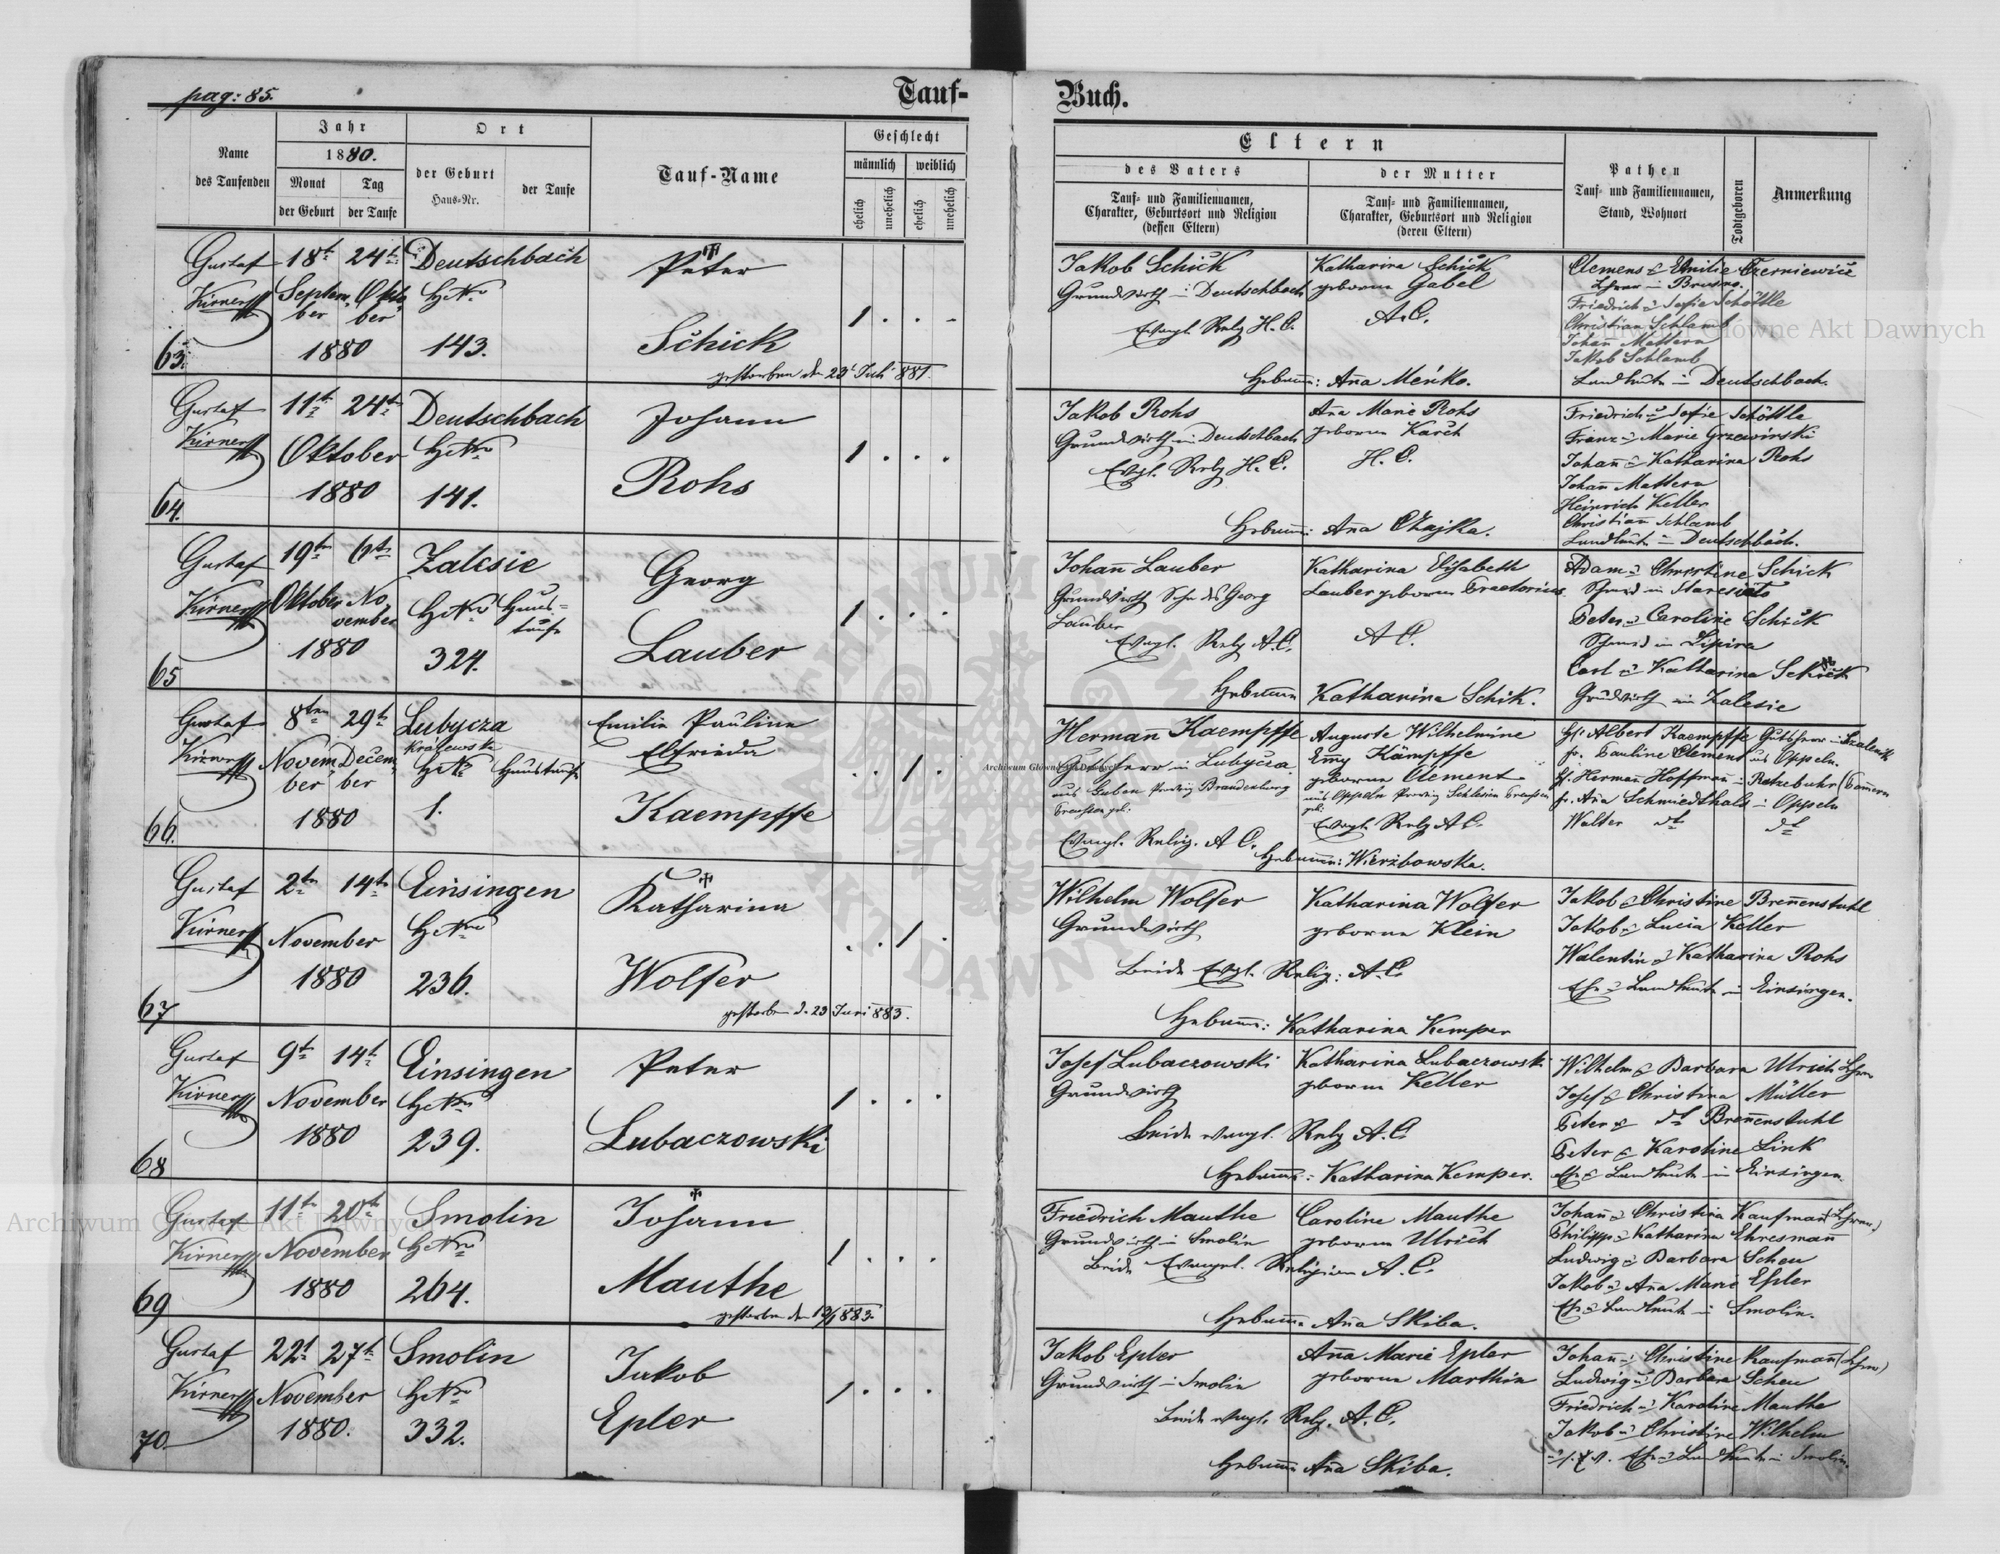 pag: 85.
Tauf-
Buch.
Name
des Taufenden
Jahr
1880.
Monat
der Geburt
Tag
der Taufe
Ort
der Geburt
Haus-Nr.
der Taufe
Tauf-Name
Geschlecht
männlich
weiblich
ehelich
unehelich
ehelich
unehelich
Eltern
des Vaters
Tauf- und Familiennamen,
Charakter, Geburtsort und Religion
(dessen Eltern)
der Mutter
Tauf- und Familiennamen,
Charakter, Geburtsort und Religion
(deren Eltern)
Pathen
Tauf- und Familiennamen,
Stand, Wohnort
Todtgeboren
Anmerkung
63.
Gustaf
Kirner
18t 24t
Septem- Okto-
ber ber
1880
Deutschbach
HNro
143.
Peter
Schick
gestorben den 23t Juli 881.
1 . . -
Jakob Schick
Grundwirth in Deutschbach
Evngl. Relg H. C.
Katharina Schick
geborene Gabel
A.C.
Hebamme: Ana Meńko.
Clemens & Emilie Czerniewicz
Friedrich & Sofie Schöttle
Christian Schlamb
Johan Mattern
Jakob Schlamb
Landleute in Deutschbach.
64.
Gustaf
Kirner
11t 24t
Oktober
1880
Deutschbach
HNro
141.
Johann
Rohs
1 . . .
Jakob Rohs
Grundwirth in Deutschbach
Evgl. Relg H. C.
Ana Marie Rohs
geborene Karch
H. C.
Hebamme: Ana Czajka.
Friedrich & Sofie Schöttle
Franz & Marie Grzewinski
Johan & Katharina Rohs
Johan Mattern
Heinrich Keller
Christian Schlamb
Landleute in Deutschbach.
65
Gustaf
Kirner
19t 6t
Oktober No
vember
1880
Zalesie
HNro Haus-
taufe
324.
Georg
Lauber
1 . . .
Johan Lauber
Grundwirth Sohn des Georg
Lauber
Evngl. Relg A.C.
Katharina Elisabeth
Lauber geborene Praetorius
A C.
Hebamme Katharina Schik.
Adam & Christine Schick
Peter & Caroline Schick
Schmid in Lipina
Carl & Katharina Schick
Grundwirth in Zalesie
66.
Gustaf
Kirner
8ten 29t
Novem- Decem-
ber ber
1880
Lubycza
Królewska
HNro Haustaufe
1.
Emilie Pauline
Elfrieda
Kaempffe
. . 1 .
Herman Kaempffe
Gutsherr in Lubycza
aus Guben Provinz Brandenburg
Preussen geb.
Evangl. Relig. A C.
Auguste Wilhelmine
Emy Kämpffe
geborene Clement
aus Oppeln Provinz Schlesien Preussen
geb.
Evangl. Relg A C.
Hebamme: Wierzbowska.
Hr. Albert Kaempffe Gutsherr in
fr. Pauline Clement aus Oppeln.
Hr. Herman Hoffmann in Ratzebuhr (Pommern
fr. Ana Schmiedthals in Oppeln
Walter dt dt
67
Gustaf
Kirner
2t 14t
November
1880
Einsingen
HNro
236.
Katharina
Wolfer
gestorben d. 23 Juni 883.
. . 1 .
Wilhelm Wolfer
Grundwirth
Katharina Wolfer
geborene Klein
Beide Evgl. Relig: A.C.
Hebamme: Katharina Kemper
Jakob & Christine Brenenstuhl
Jakob & Lucia Keller
Walentin & Katharina Rohs
Landleute in Einsingen.
68
Gustaf
Kirner
9t 14t
November
1880
Einsingen
HNro
239.
Peter
Lubaczowski
1 . . .
Josef Lubaczowski
Grundwirth
Katharina Lubaczowski
geborene Keller
Beide evangl. Relg A.C.
Hebamme: Katharina Kemper.
Wilhelm & Barbara Ulrich
Josef & Christina Müller
Peter & dt Brenenstuhl
Peter & Karoline Link
Landleute in Einsingen
69
Gustaf
Kirner
11t 20t
November
1880
Smolin
HNro
264.
Johann
Mauthe
gestorben den 883
1 . . .
Friedrich Mauthe
Grundwirth in Smolin
Caroline Mauthe
geborene Ulrich
Beide Evangel. Religion A. C.
Hebamme Ana Skiba.
Johan & Christina Kaufman
Philipp & Katharina Ehresman
Ludwig & Barbara Scheu
Jakob & Ana Marie Epler
Landleute in Smolin.
70.
Gustaf
Kirner
22t 27t
November
1880.
Smolin
HNro
332.
Jakob
Epler
1 . . .
Jakob Epler
Grundwirth in Smolin
Ana Marie Epler
geborene Marthin
Beide evangl. Relg. A. C.
Hebamme Ana Skiba.
Johan & Christine Kaufman
Ludwig & Barbara Scheu
Friedrich & Karoline Mauthe
Jakob & Christine Wilhelm
Landleute in Smolin.
Archiwum Główne Akt Dawnych
Archiwum Główne Akt Dawnych
Archiwum Główne Akt Dawnych
ARCHIWUM GŁÓWNE AKT DAWNYCH